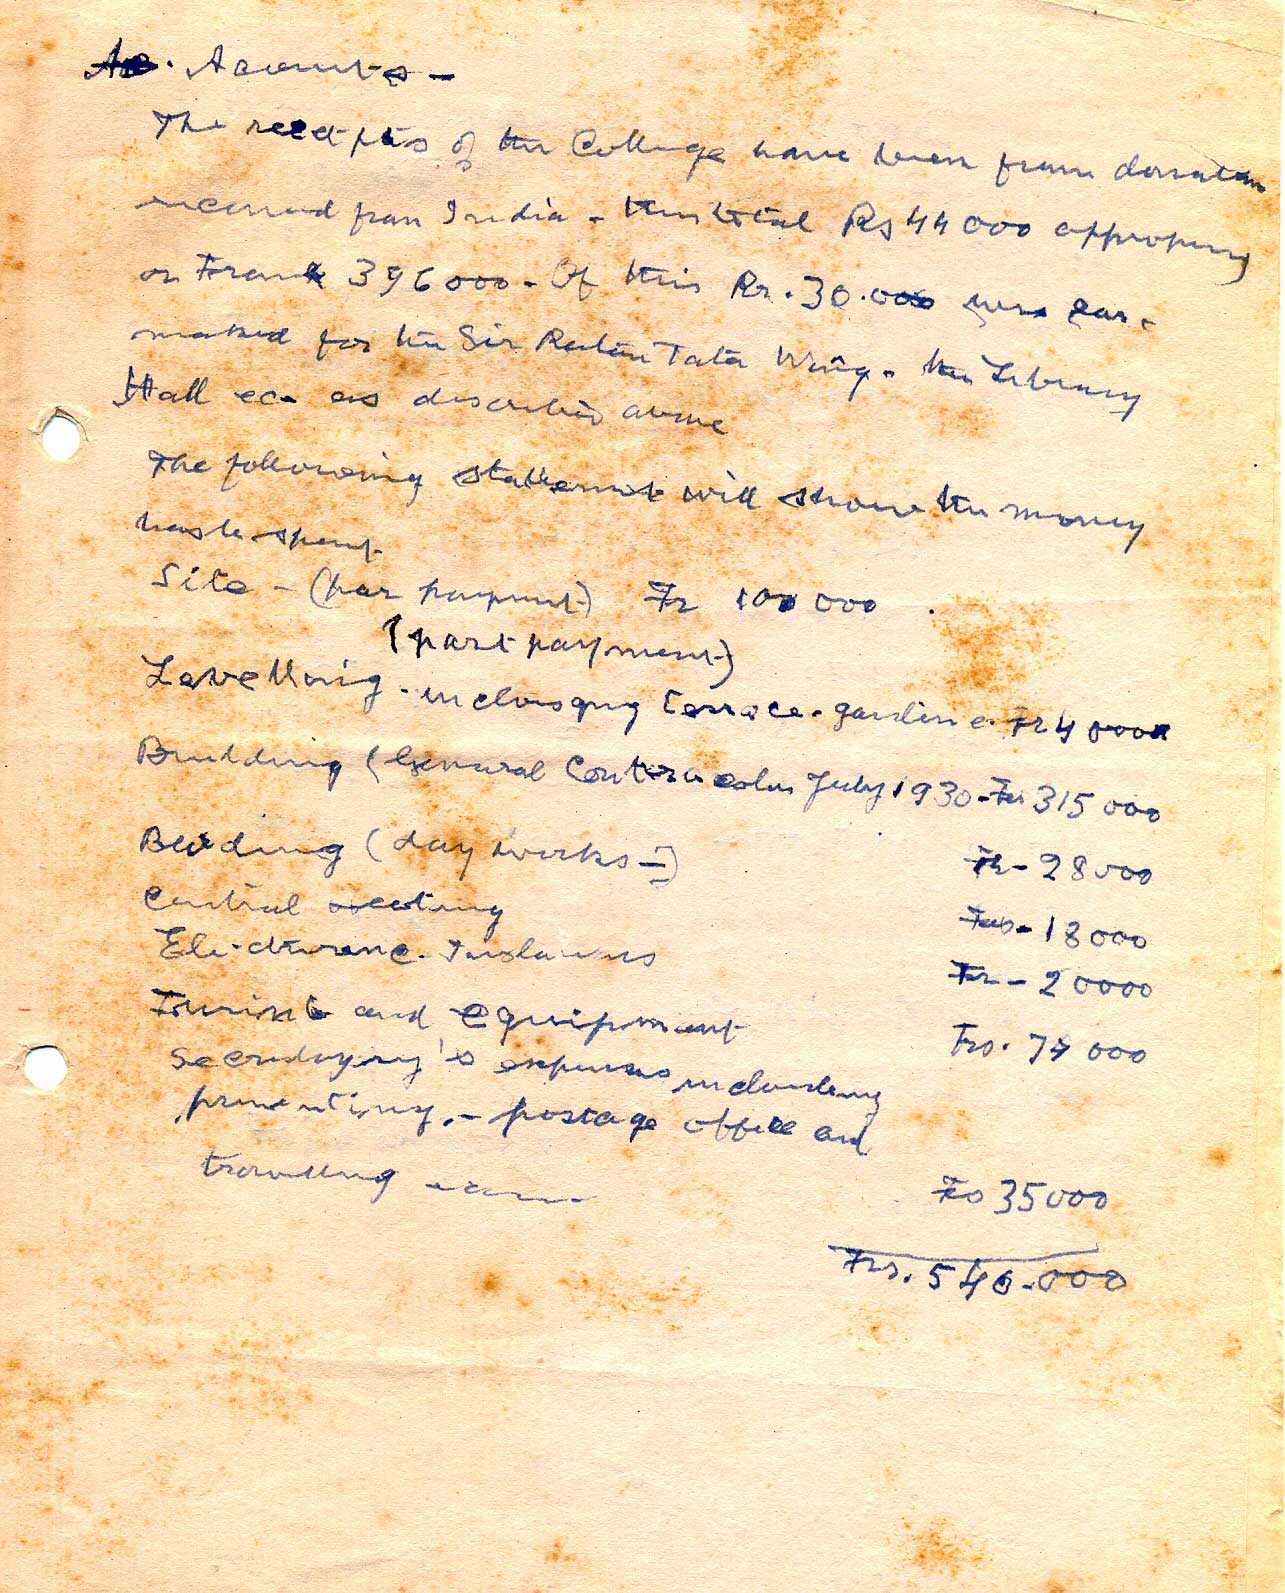 Accounts -
The receipts of the College have been from donations
received from India - this total Rs 44 000
or Frank 396 000 - Of this Rs. 30.000 were ear-
marked for the Sir Ratan Tata Wing - the Library
Hall ec- as described above
The following statement will show the money
has be spent.
Site - (par payment) Fr 100 000
(part payment)
Levelling - terrace - garden e. Fr 40000
Building (General Contractor July 1930 - Frs 315 000
Building (day works -)
Fr - 28000
Central
Frs - 18000
Fr - 20000
and equipment
Frs. 74 000
Secretary's expenses including
printing, - postage office and
travelling
Frs 35000
Frs. 546.000